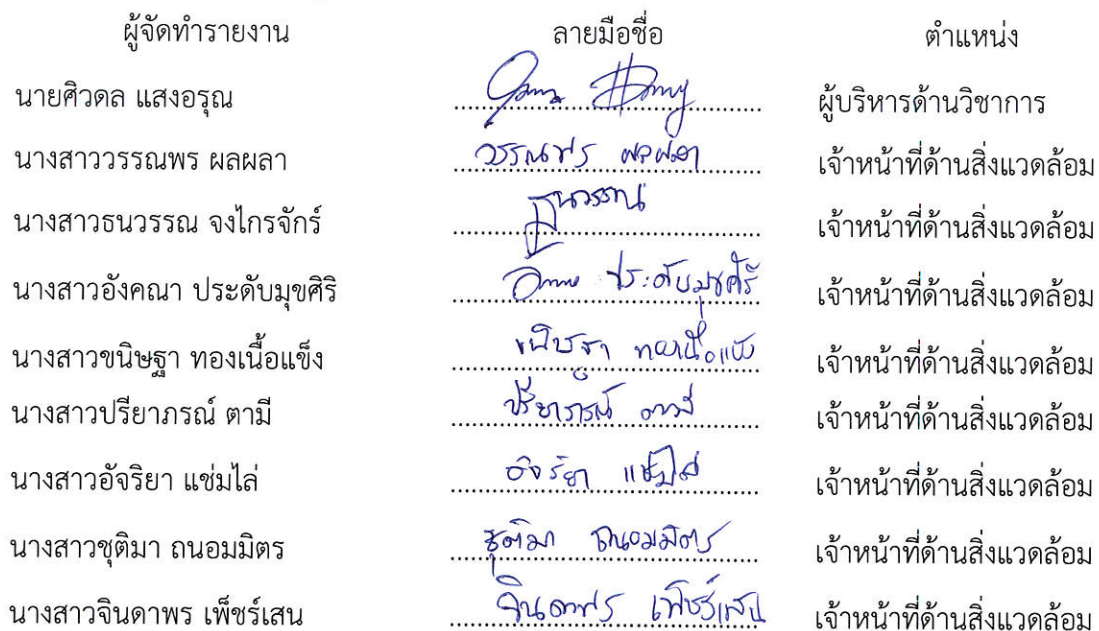 ผู้จัดทำรายงาน ลายมือชื่อ ตำแหน่ง
นายศิวดล แสงอรุณ ผู้บริหารด้านวิชาการ
นางสาววรรณพร ผลผลา วรรณพร ผลผลา เจ้าหน้าที่ด้านสิ่งแวดล้อม
นางสาวธนวรรณ จงไกรจักร์ ธนวรรณ เจ้าหน้าที่ด้านสิ่งแวดล้อม
นางสาวอังคณา ประดับมุขศิริ ประดับมุขศิริ เจ้าหน้าที่ด้านสิ่งแวดล้อม
นางสาวขนิษฐา ทองเนื้อแข็ง ขนิษฐา ทองเนื้อแข็ง เจ้าหน้าที่ด้านสิ่งแวดล้อม
นางสาวปรียาภรณ์ ตามี ปรียาภรณ์ ตามี เจ้าหน้าที่ด้านสิ่งแวดล้อม
นางสาวอัจริยา แช่มไล่ อัจริยา แช่มไล่ เจ้าหน้าที่ด้านสิ่งแวดล้อม
นางสาวชุติมา ถนอมมิตร ชุติมา ถนอมมิตร เจ้าหน้าที่ด้านสิ่งแวดล้อม
นางสาวจินดาพร เพ็ชร์เสน จินดาพร เพ็ชร์เสน เจ้าหน้าที่ด้านสิ่งแวดล้อม